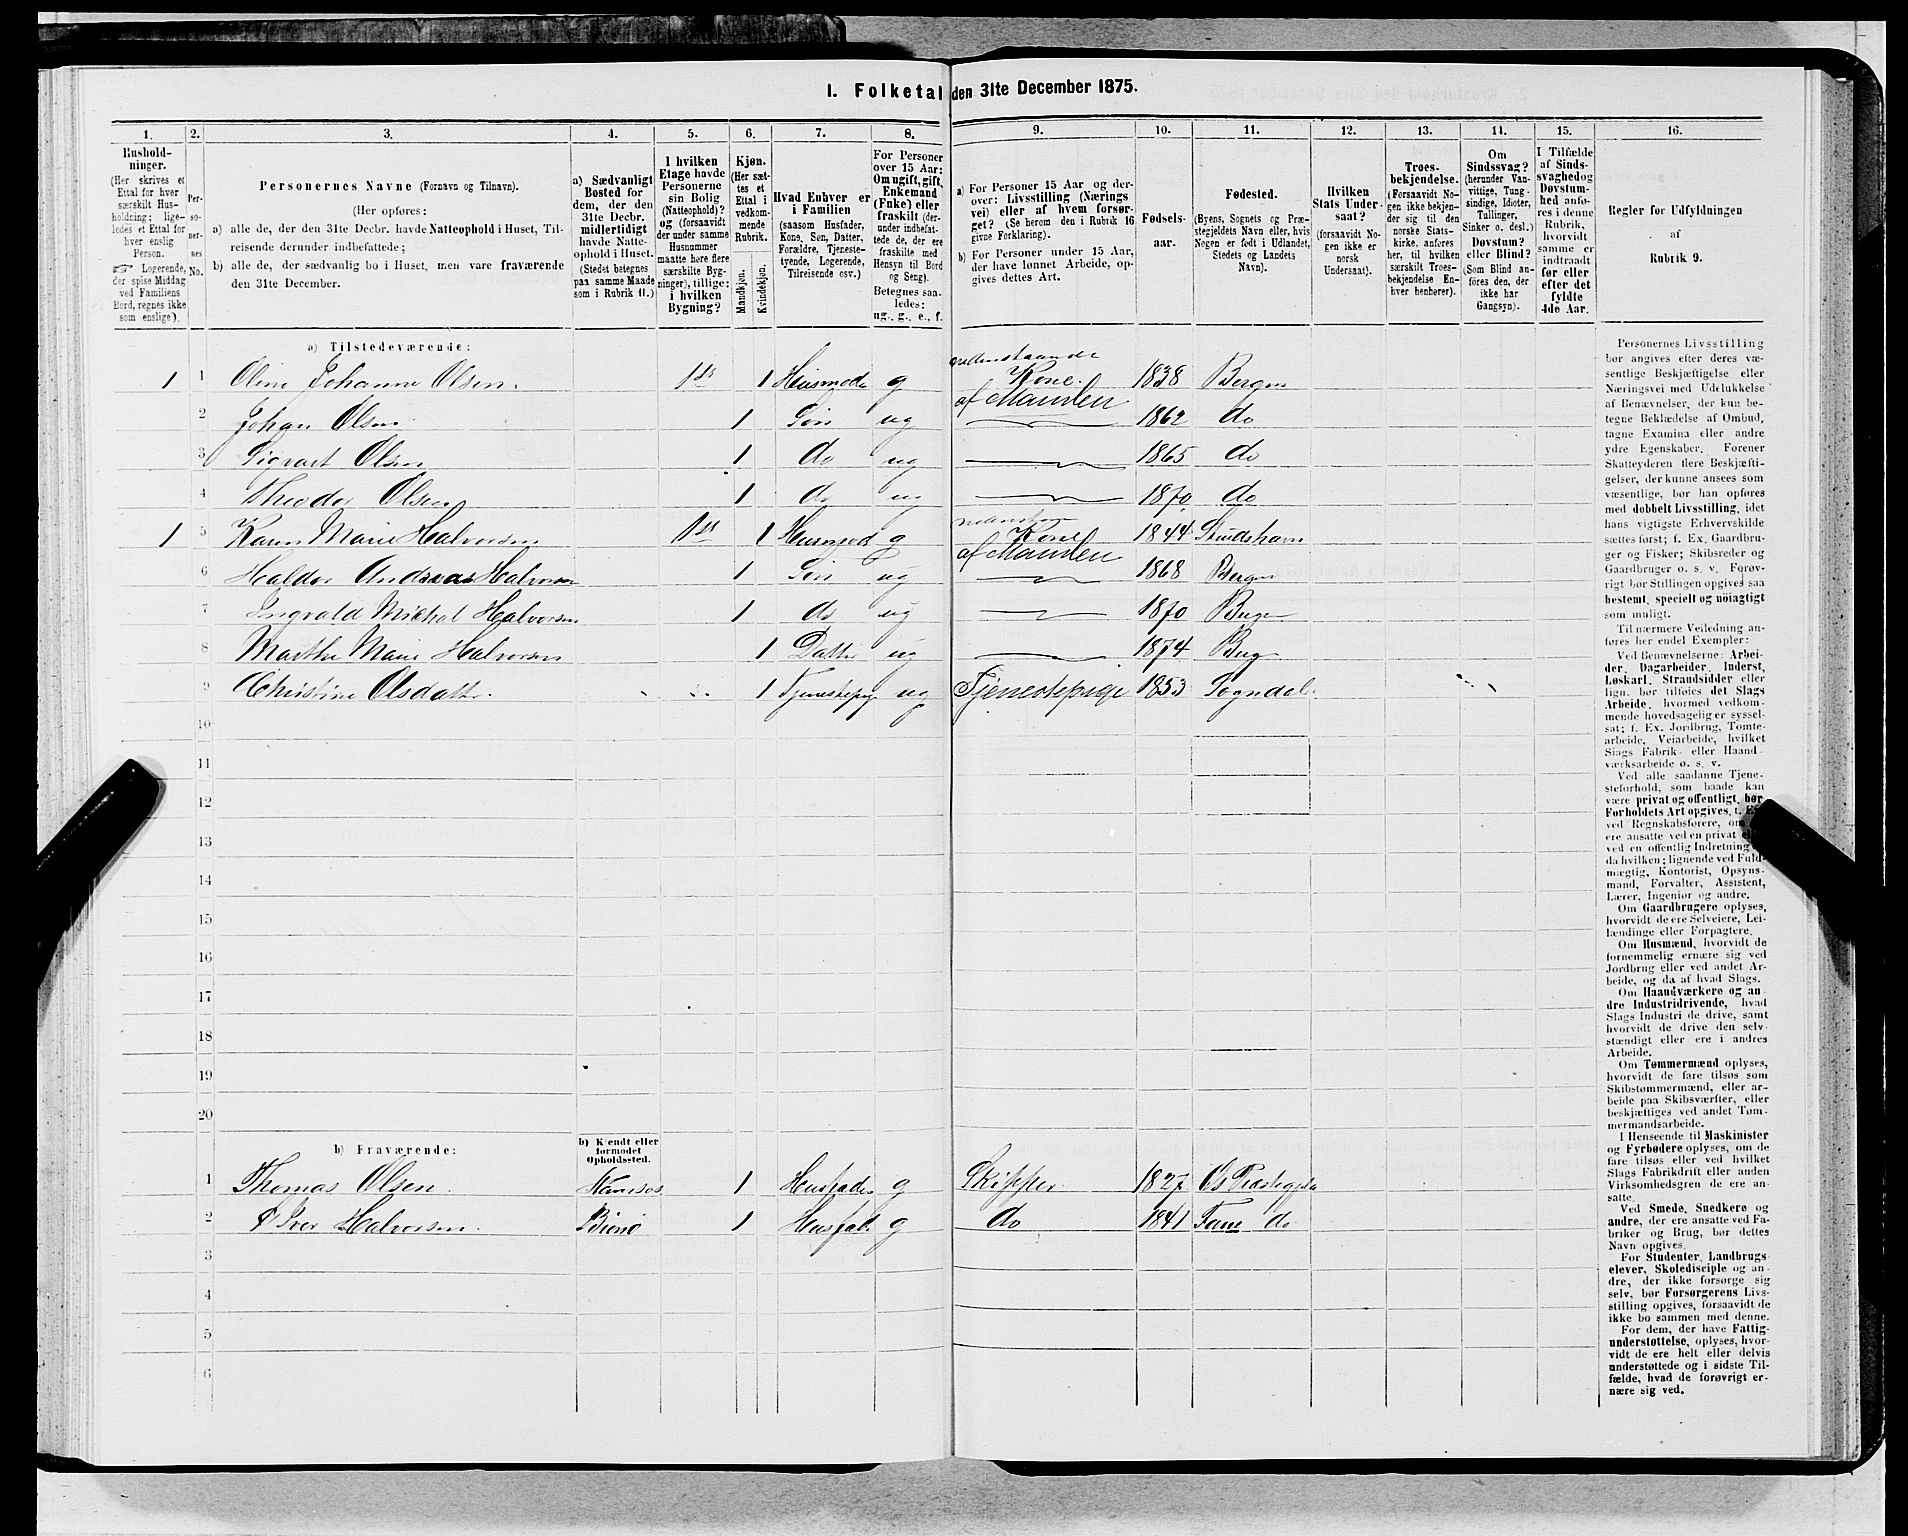 I. Folketal den 31te December 1875.
1. 2. 3. 4. 5. 6. 7. 8. 9. 10. 11. 12. 13. 14. 15. 16.
Hushold-
ninger.
(Her skrives et
Ettal for hver
særskilt Hus-
holdning; lige-
ledes et Ettal for
hver enslig
Person.
☞ Logerende,
der spise Middag
ved Familiens
Bord, regnes ikke
som enslige).
Per-
so-
ner-
nes
No.
Personernes Navne (Fornavn og Tilnavn).
(Her opføres:
a) alle de, der den 31te Decbr. havde Natteophold i Huset, Til-
reisende derunder indbefattede;
b) alle de, der sædvanlig bo i Huset, men vare fraværende
den 31te December.
a) Sædvanligt
Bosted for
dem, der den
31te Decbr.
midlertidigt
havde Natte-
ophold i Huset.
(Stedet betegnes
paa samme Maade
som i Rubrik 11.)
I hvilken
Etage havde
Personerne
sin Bolig
(Natteophold)?
og (forsaavidt
der under samme
Husnummer
maatte høre flere
særskilte Byg-
ninger), tillige:
i hvilken
Bygning?
Kjøn.
(Her sæt-
tes et
Ettal i
vedkom-
mende
Rubrik.
Mandkjøn.
Kvindekjøn.
Hvad Enhver er
i Familien
(saasom Husfader,
Kone, Søn, Datter,
Forældre, Tjeneste-
tyende, Logerende,
Tilreisende osv.)
For Personer
over 15 Aar:
Om ugift, gift,
Enkemand
(Enke) eller
fraskilt (der-
under indbefat-
tede de, der ere
fraskilte med
Hensyn til Bord
og Seng).
Betegnes saa-
ledes:
ug., g., e., f.
a) For Personer 15 Aar og der-
over: Livsstilling (Nærings
vei) eller af hvem forsør-
get? (Se herom den i Rubrik 16
givne Forklaring).
b) For Personer under 15 Aar,
der have lønnet Arbeide, op-
gives dettes Art.
Fødsels-
aar.
Fødested.
(Byens, Sognets og Præ-
stegjeldets Navn eller, hvis
Nogen er født i Udlandet,
Stedets og Landets
Navn).
Hvilken
Stats Under-
saat?
(forsaavidt No-
gen ikke er
norsk
Undersaat).
Troes-
bekjendelse.
(Forsaavidt No-
gen ikke bekjen-
der sig til den
norske Stats-
kirke, anføres
her, til hvilken
særskilt Troes-
bekjendelse En-
hver henhører).
Om
Sindssvag?
(herunder Van-
vittige, Tung-
sindige, Idioter,
Tullinger,
Sinker o. desl.)
Døvstum?
eller Blind?
(Som Blind an-
føres den, der
ikke har
Gangsyn).
I Tilfælde
af Sinds-
svaghed og
Døvstum-
hed anfø-
res i denne
Rubrik,
hvorvidt
samme er
indtraadt
før eller
efter det
fyldte
4de Aar.
Regler for Udfyldningen
af
Rubrik 9.
a) Tilstedeværende:
1 1 Oline Johanne Olsen. 1ste 1 Husmode g Kone 1838 Bergen
af Manden
2 Johan Olsen 1 Søn ug 1862 do
3 Sigvart Olsen 1 do ug 1865 do
4 Theodor Olsen 1 do ug 1870 do
1 5 Karen Marie Halvorsen 1ste 1 Husmod g Kone 1844
af Manden
6 Haldor Andreas Halvorsen 1 Søn ug 1868 Bergen
7 Ingvald Michal Halvorsen 1 do ug 1870 Bergen
8 Marthe Marie Halvorsen 1 Datter ug 1874 Berg
9 Christine Olsdatter. 1 Tjenestepige ug Tjenestepige 1853 Sogndal.
10
11
12
13
14
15
16
17
18
19
20
b) Fraværende:
b) Kjendt eller
formodet
Opholdssted.
1 Thomas Olsen. Namsos 1 Husfader g Skipper 1827 Os
2 Iver Halvorsen. 1 Husfad. g do 1841 Fane do
3
4
5
6
Personernes Livsstilling
bør angives efter deres væ-
sentlige Beskjæftigelse eller
Næringsvei med Udelukkelse
af Benævnelser, der kun be-
tegne Beklædelse af Ombud,
tagne Examina eller andre
ydre Egenskaber. Forener
Skatteyderen flere Beskjæfti-
gelser, der kunne ansees som
væsentlige, bør han opføres
med dobbelt Livsstilling, idet
hans vigtigste Erhvervskilde
sættes først; f. Ex. Gaardbru-
ger og Fisker; Skibsreder og
Gaardbruger o. s. v. Forøv-
rigt bør Stillingen opgives saa
bestemt, specielt og nöiagtigt
som muligt.
Til nærmere Veiledning an-
føres her endel Exempler:
Ved Benævnelserne: Arbei-
der, Dagarbeider, Inderst,
Løskarl, Strandsidder eller
lign. bør tilføies det Slags
Arbeide, hvormed vedkom-
mende hovedsagelig er syssel-
sat; f. Ex. Jordbrug, Tomte-
arbeide, Veiarbeide, hvilket
Slags Fabrik- eller Haand-
værksarbeide o. s. v.
Ved alle saadanne Tjene-
steforhold, som baade kan
være privat og offentligt, bør
Forholdets Art opgives, t. Ex.
ved Regnskabsførere, om
ere ansatte ved en privat
ved en offentlig Indretning
da hvilken; lignende ved Fuld-
mægtig, Kontorist, Opsyns-
mand, Forvalter, Assistent,
Lærer, Ingeniør og andre.
Om Gaardbrugere oplyses,
hvorvidt de ere Selveiere, Lei-
lændinge eller Forpagtere.
Om Husmænd, hvorvidt de
fornemmelig ernære sig ved
Jordbrug eller ved andet Ar-
beide, og da af hvad Slags.
Om Haandværkere og an-
dre Industridrivende, hvad
Slags Industri de drive, samt
hvorvidt de drive den selv-
stændigt eller ere i andres
Arbeide.
Om Tømmermænd oplyses,
hvorvidt de fare tilsøs som
Skibstømmermænd, eller ar-
beide paa Skibsværfter, eller
beskjæftiges ved andet Tøm-
mermandsarbeide.
I Henseende til Maskinister
og Fyrbødere oplyses, om de
fare tilsøs eller ved hvilket
Slags Fabrikdrift eller anden
Virksomhedsgren de ere an-
satte.
Ved Smede, Snedkere og
andre, der ere ansatte ved Fa-
briker og Brug, bør dettes
Navn opgives.
For Studenter, Landbrugs-
elever, Skoledisciple og an-
dre, der ikke forsørge sig
selv, bør Forsørgerens Livs-
stilling opgives, forsaavidt de
ikke bo sammen med denne.
For dem, der have Fattig-
understøttelse, oplyses, hvor-
vidt de ere helt eller delvis
understøttede og i sidste Til-
fælde, hvad de forøvrigt er-
nære sig ved.